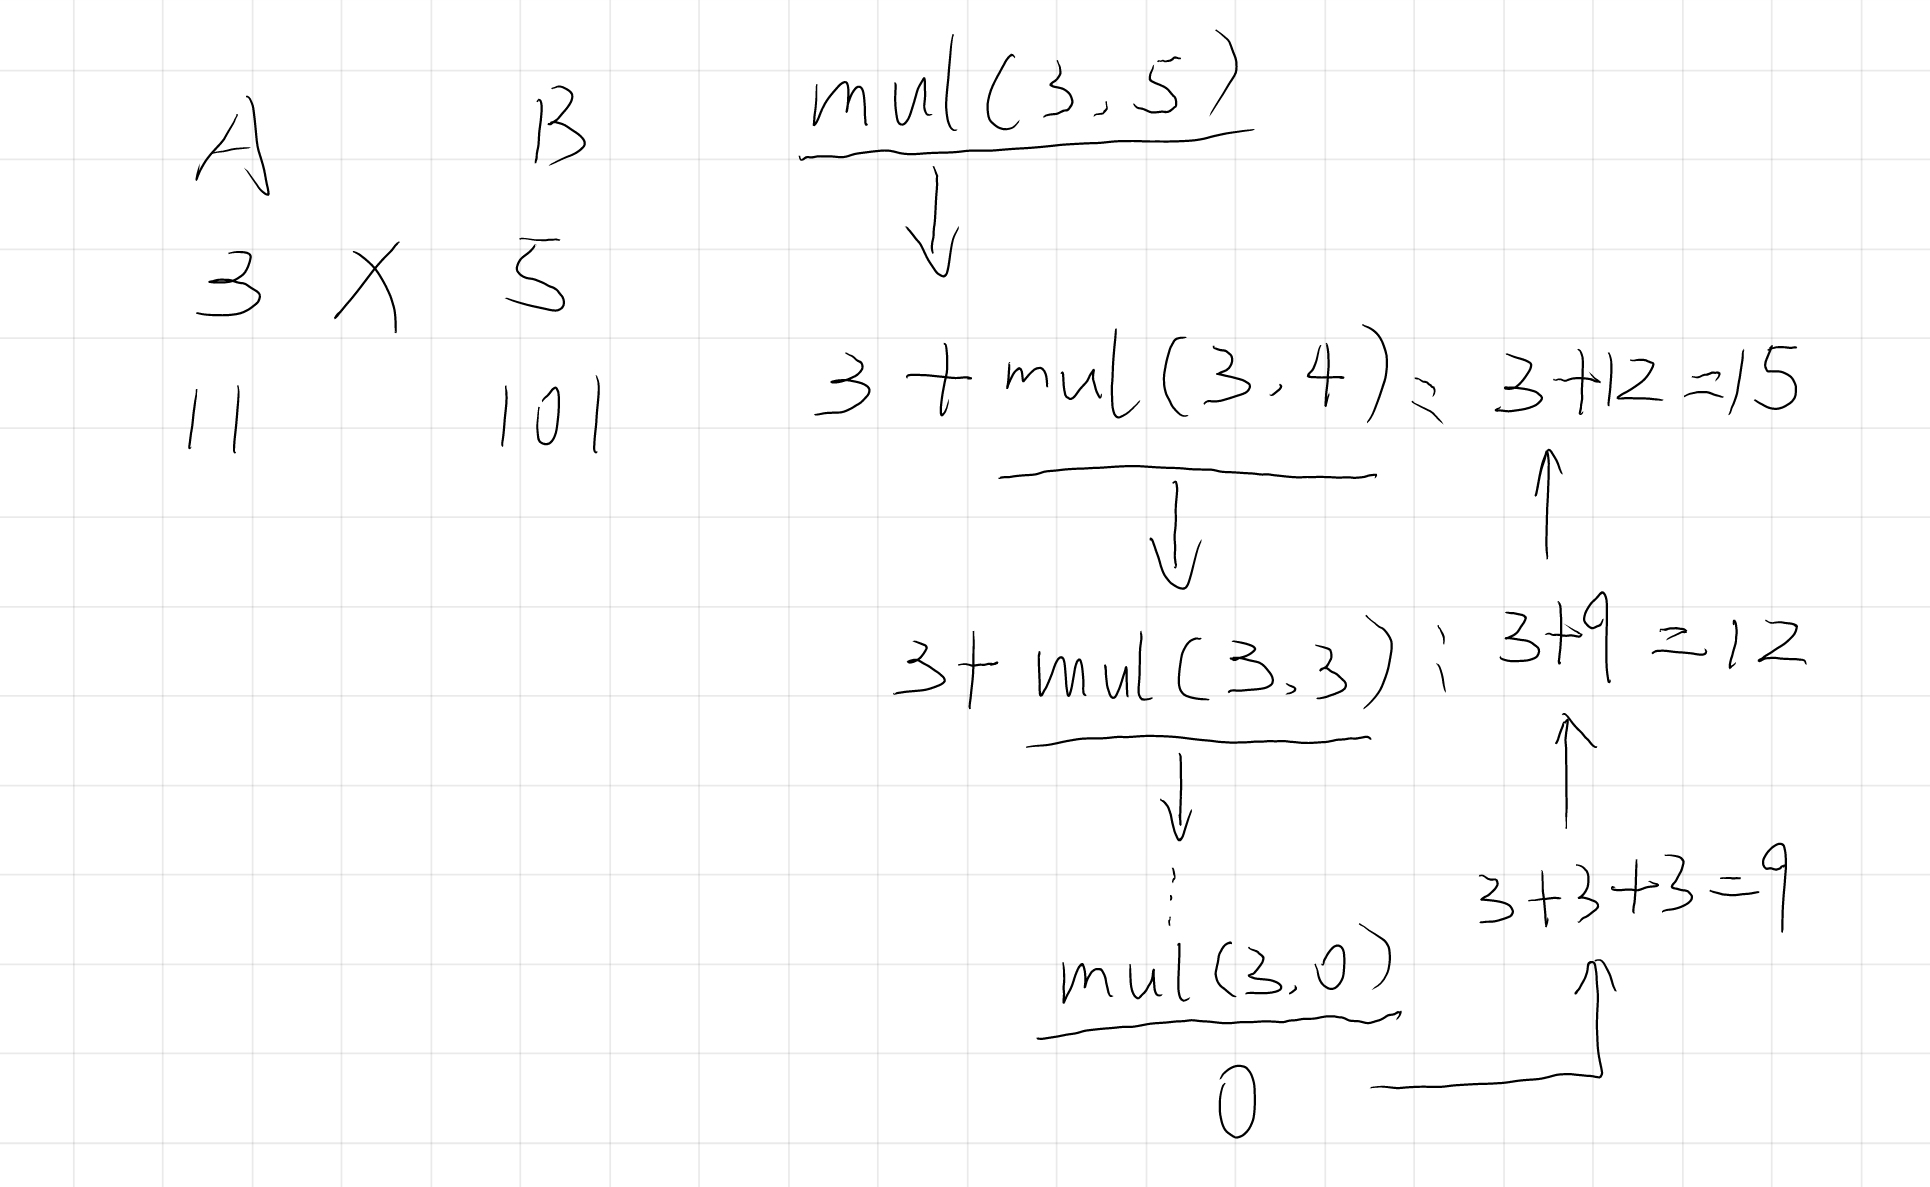 A B
3 × 5
11 101
mul(3,5)
3 + mul(3,4) = 3+12=15
3+ mul(3,3) : 3+9=12
3+3+3=9
mul(3,0)
0